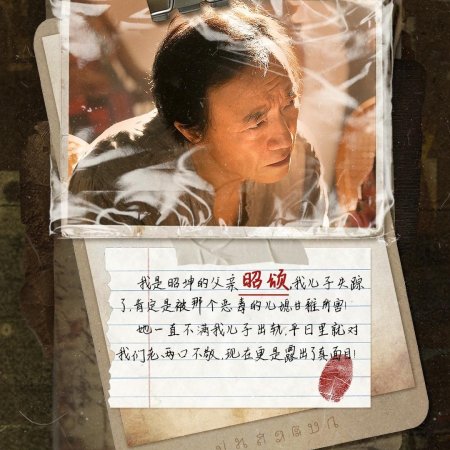 我是昭坤的父亲昭颂,我儿子失踪
了,肯定是被那个恶毒的儿媳甘雅所害!
她一直不满我儿子出轨,平日里就对
我们老两口不敬,现在更是露出了真面目!